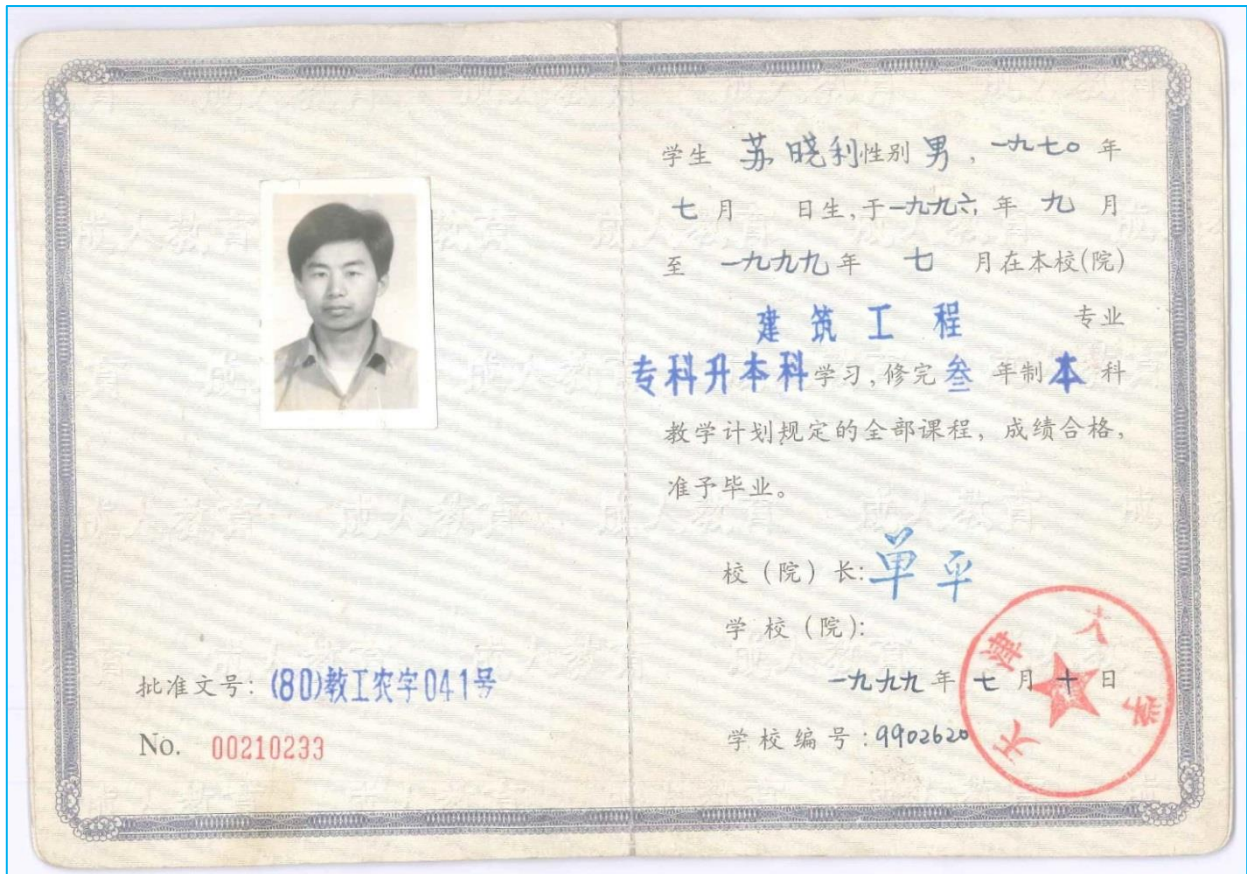 批准文号：(80)教工农字041号
No. 00210233
学生 苏晓利 性别 男，一九七〇年
七月 日生,于一九九六年 九 月
至 一九九九年 七 月在本校(院)
建筑工程 专业
专科升本科学习,修完叁年制本科
教学计划规定的全部课程，成绩合格，
准予毕业。
校（院）长:单平
学校（院）:
一九九九年七月十日
学校编号:9902620
天津大学
成人教育